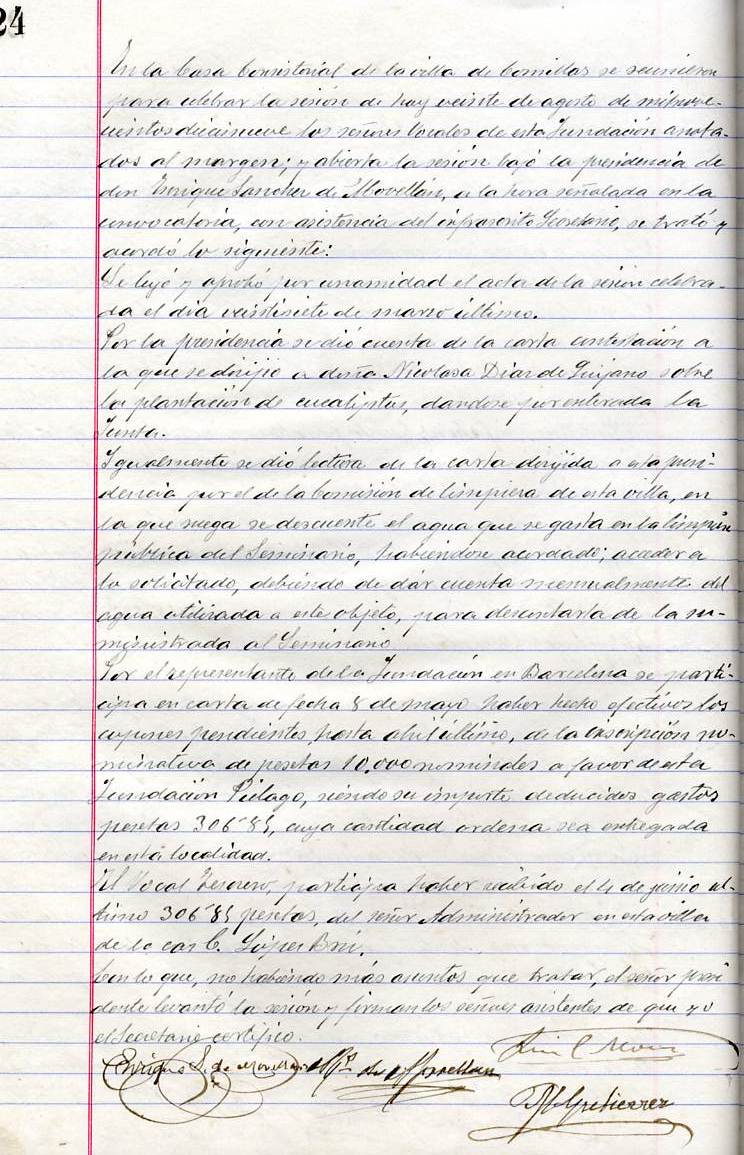 24
En la Casa Consistorial de la villa de Comillas se reunieron
para celebrar la sesión de hoy veinte de agosto de mil nove-
cientos diecinueve los señores Vocales de esta Fundación anota-
dos al margen; y abierta la sesión bajo la presidencia de
don Enrique Sanchez de Movellán, a la hora señalada en la
convocatoria, con asistencia del infrascrito Secretario, se trató y
acordó lo siguiente:
Se leyó y aprobó por unanimidad el acta de la sesión celebra-
da el día veintisiete de marzo último.
Por la presidencia se dió cuenta de la carta contestación a
la que se dirijió a doña Nicolasa Diaz de Quijano sobre
la plantación de eucaliptus, dandose por enterada la
Junta.
Igualmente se dió lectura de la carta dirijida a esta presi-
dencia por el de la Comisión de limpieza de esta villa, en
la que ruega se descuente el agua que se gasta en la limpieza
pública del Seminario, habiéndose acordado; acceder a
lo solicitado, debiendo de dár cuenta mensualmente del
agua utilizada a este objeto, para descontarla de la su-
ministrada al Seminario
Por el representante de la Fundación en Barcelona se parti-
cipa en carta de fecha 8 de mayo haber hecho efectivos los
cupones pendientes hasta abril último, de la inscripción no-
minativa de pesetas 10.000 nominales a favor de esta
Fundación Piélago, siendo su importe deducidos gastos
pesetas 306'85, cuya cantidad ordena sea entregada
en esta localidad.
El Vocal Tesorero, participa haber recibido el 4 de junio úl-
timo 306'85 pesetas, del señor Administrador en esta villa
de la casa C. López Brú.
Con lo que, no habiendo más asuntos que tratar, el señor presi
dente levantó la sesión y firman los señores asistentes de que yo
el Secretario certifico.
Enrique S. de Movellan de Movellan
Gutierrez